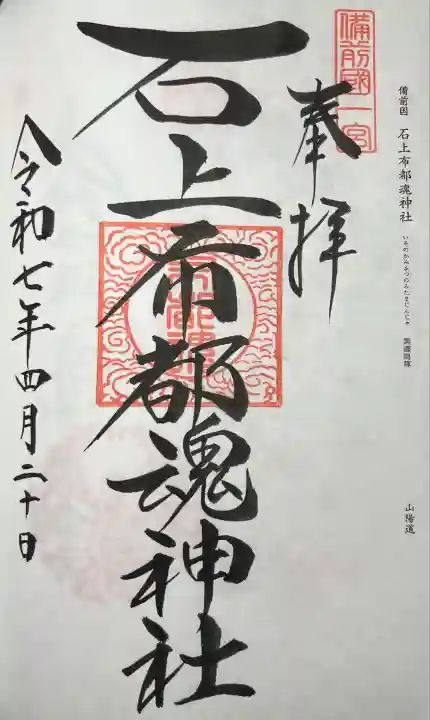 備前国 石上布都魂神社 いそのかみふつのみたまじんじゃ
山陽道
備前國一宮
奉拝
石上布都魂神社
令和七年四月二十日